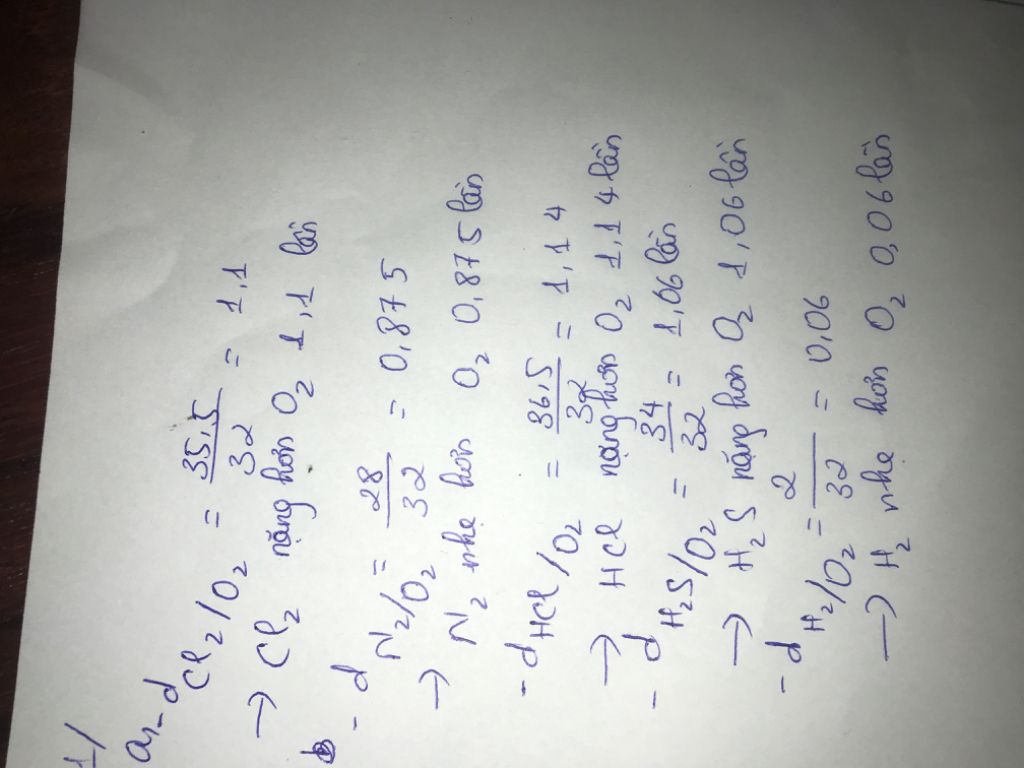 1/
a, - d Cl2/O2 = 35,5/32 = 1,1
→ Cl2 nặng hơn O2 1,1 lần
- d N2/O2 = 28/32 = 0,875
→ N2 nhẹ hơn O2 0,875 lần
- d HCl/O2 = 36,5/32 = 1,14
→ HCl nặng hơn O2 1,14 lần
- d H2S/O2 = 34/32 = 1,06 lần
→ H2S nặng hơn O2 1,06 lần
- d H2/O2 = 2/32 = 0,06
→ H2 nhẹ hơn O2 0,06 lần